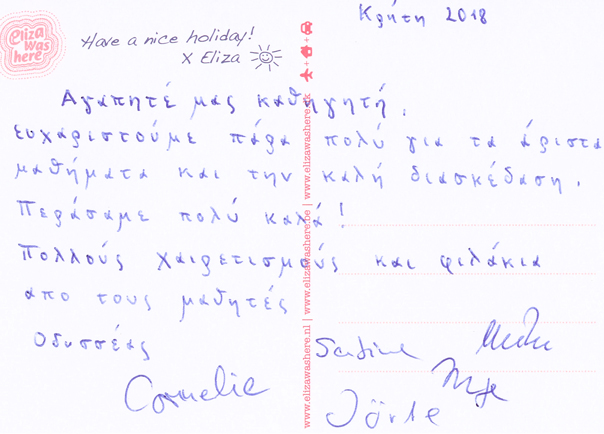 Κρήτη 2018
eliza was here
Have a nice holiday!
X Eliza
Αγαπητέ μας καθηγητή,
ευχαριστούμε πάρα πολύ για τα άριστα
μαθήματα και την καλή διασκέδαση.
Περάσαμε πολύ καλά!
Πολλούς χαιρετισμούς και φιλάκια
απο τους μαθητές
Οδυσσέας
Cornelie
Jörle
www.elizawashere.nl | www.elizawashere.be | www.elizawashere.dk